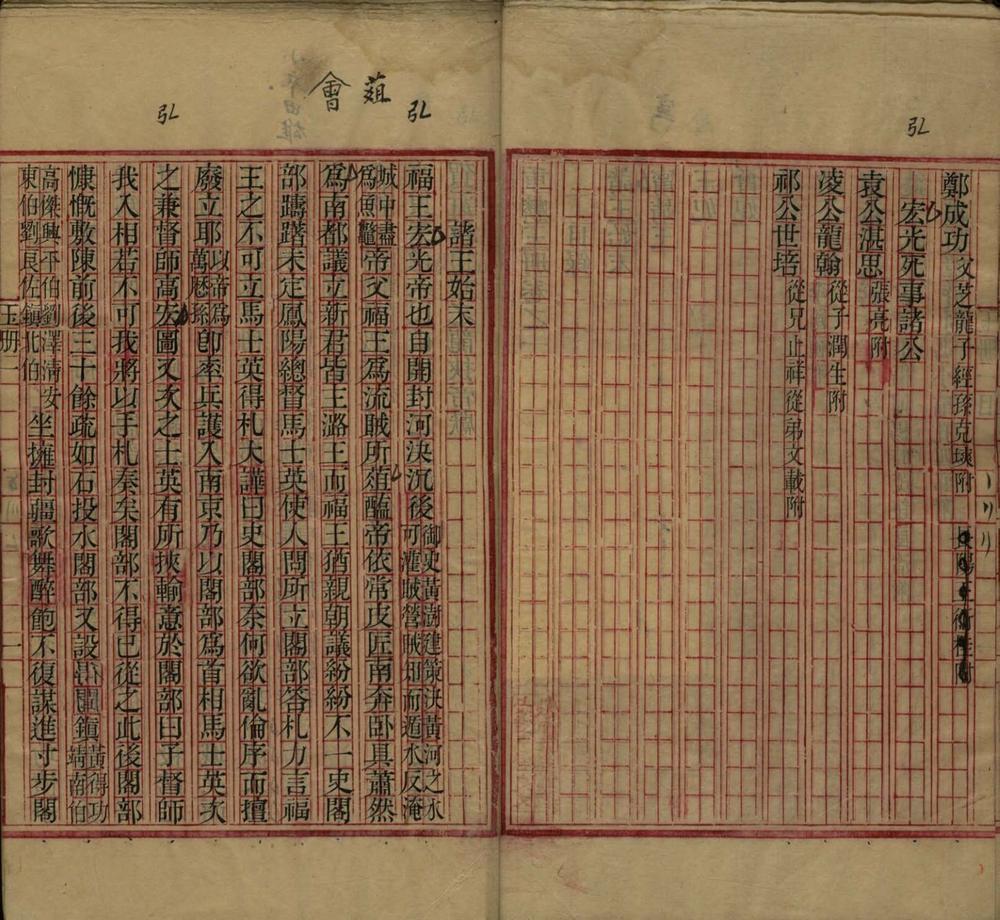 弘
鄭成功父芝龍子經孫克塽附
宏光死事諸公
袁公湛思張亮附
凌公龍翰從子潤生附
祁公世培從兄止祥從弟文載附
弘
菹
會
弘
諸王始末
福王宏光帝也自開封河決沉後御史黃澍建策決黃河之水可灌賊營賊知而遁水反淹
城中盡為魚鼈帝父福王爲流賊所葅醢帝依常皮匠南奔卧具蕭然
爲南都議立新君皆王潞王而福王猶親朝議紛紛不一史閣
部躊躇未定鳳陽總督馬士英使人問所立閣部答札力言福
王之不可立馬士英得札大譁曰史閣部奈何欲亂倫序而擅
廢立耶以帝爲萬厯孫卽率兵護入南京乃以閣部爲首相馬士英次
之兼督師高宏圖又次之士英有所挾輸意於閣部曰子督師
我入相若不可我將以手札奏矣閣部不得已從之此後閣部
慷慨敷陳前後三十餘疏如石投水閣部又設四鎭黃得功靖南伯
高傑興平伯劉澤淸安東伯劉良佐鎭北伯坐擁封疆歌舞醉飽不復謀進寸步閣
玉册一
一